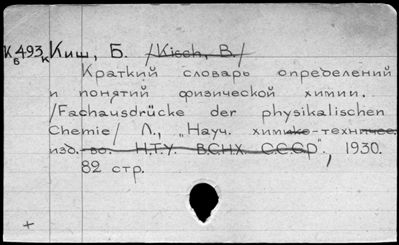 К 493 к Киш, Б. /Kisch, B./
6
Краткий словарь определений
и понятий физической химии.
/Fachausdrücke der physikalischen
Chemie/ Л., „Науч. химико-технич.
изд.-во. Н.Т.У. В.С.Н.Х. С.С.С.Р", 1930.
82 стр.
+